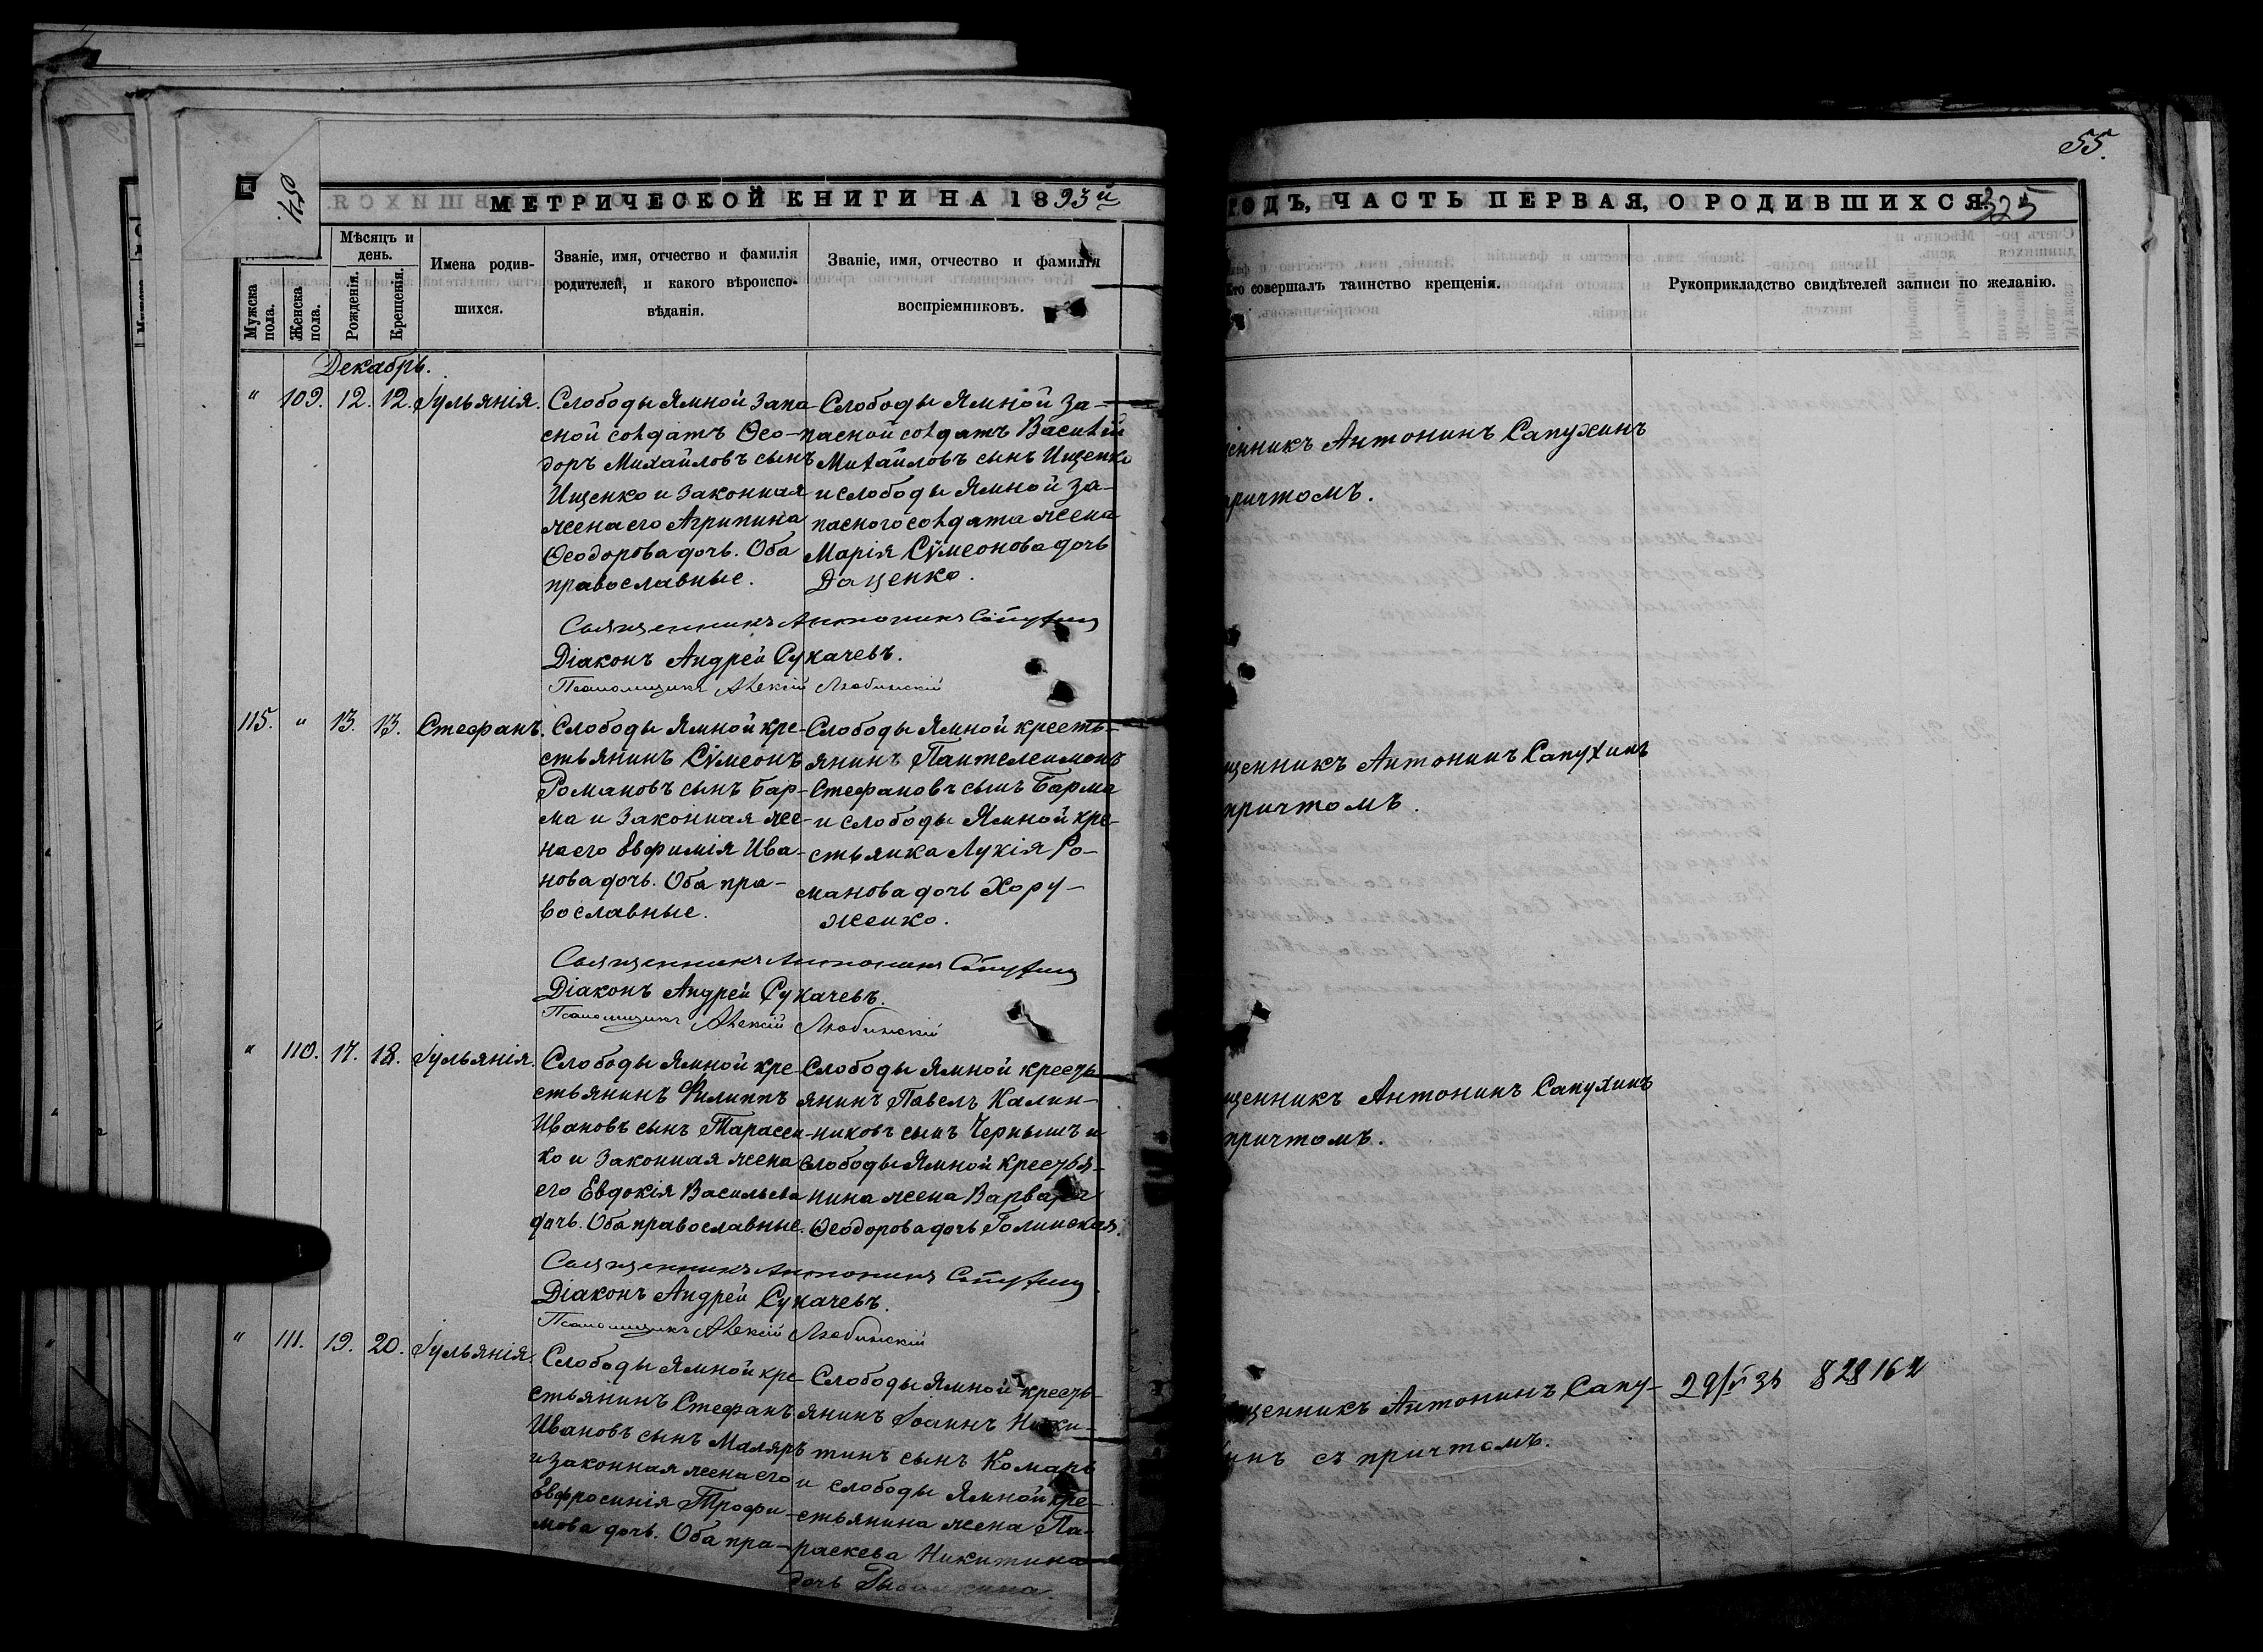 55.
54.
МЕТРИЧЕСКОЙ КНИГИ НА 1893й
ГОДЪ, ЧАСТЬ ПЕРВАЯ, О РОДИВШИХСЯ.
325
Мѣсяцъ и день.
Мужска пола.
Женска пола.
Рожденія.
Крещенія.
Имена родив-
шихся.
Званіе, имя, отчество и фамилія
родителей, и какого вѣроиспо-
вѣданія.
Званіе, имя, отчество и фамилія
воспріемниковъ.
Кто совершалъ таинство крещенія.
Рукоприкладство свидѣтелей записи по желанію.
Декабрь.
" 109. 12. 12. Іульянія.
Слободы Ямной запа-
сной солдатъ Ѳео-
доръ Михайловъ сынъ
Ищенко и законная
жена его Агрипина
Ѳеодорова дочь. Оба
православные.
Слободы Ямной за-
пасной солдатъ Василій
Михайловъ сынъ Ищенко
и слободы Ямной за-
паснаго солдата жена
Марія Сѵмеонова дочь
Даценко.
Священникъ Антонинъ Сапухинъ
причтомъ.
Священникъ Антонинъ Сапухинъ
Діаконъ Андрей Сукачевъ.
Псаломщикъ Алексій Любинскій
115. " 13. 13. Стефанъ.
Слободы Ямной кре-
стьянинъ Сѵмеонъ
Романовъ сынъ Бар-
ма и законная же-
на его Евфимія Ива-
нова дочь. Оба пра-
вославные.
Слободы Ямной кресть-
янинъ Пантелеимонъ
Стефановъ сынъ Барма
и слободы Ямной кре-
стьянка Лукія Ро-
манова дочь Хору-
женко.
щенникъ Антонинъ Сапухинъ
причтомъ.
Священникъ Антонинъ Сапухинъ
Діаконъ Андрей Сукачевъ.
Псаломщикъ Алексій Любинскій
" 110. 17. 18. Іульянія.
Слободы Ямной кре-
стьянинъ Филиппъ
Ивановъ сынъ Тарасен-
ко и законная жена
его Евдокія Васильева
дочь. Оба православные.
Слободы Ямной кресть-
янинъ Павелъ Калин-
никовъ сынъ Чернышъ и
слободы Ямной крестья-
нина жена Варвара
Ѳеодорова дочь Голинская.
щенникъ Антонинъ Сапухинъ
причтомъ.
Священникъ Антонинъ Сапухинъ
Діаконъ Андрей Сукачевъ.
Псаломщикъ Алексій Любинскій
" 111. 19. 20. Іульянія.
Слободы Ямной кре-
стьянинъ Стефанъ
Ивановъ сынъ Маляръ
и законная жена его
Евфросинія Трофи-
мова дочь. Оба пра-
Слободы Ямной кресть-
янинъ Іоаннъ Ники-
тинъ сынъ Комаръ
и слободы Ямной кре-
стьянина жена Па-
раскева Никитина
дочь
щенникъ Антонинъ Сапу-
инъ съ причтомъ.
828162